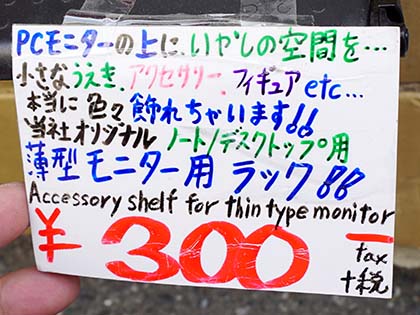 PCモニターの上に、いやしの空間を…
小さなうえき、アクセサリー、フィギュアetc...
本当に色々飾れちゃいます!!
当社オリジナル ノート/デスクトップ用
薄型モニター用 ラック!!
Accessory shelf for thin type monitor
¥300－
tax
+税